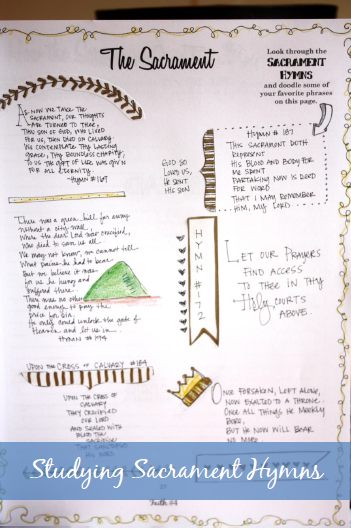 The Sacrament
Look through the
SACRAMENT
HYMNS
and doodle some of
your favorite phrases
on this page.
AS NOW WE TAKE THE
SACRAMENT, OUR THOUGHTS
ARE TURNED TO THEE,
THOU SON OF GOD, WHO LIVED
FOR US, THEN DIED ON CALVARY.
WE CONTEMPLATE THY LASTING
GRACE, THY BOUNDLESS CHARITY;
TO US THE GIFT OF LIFE WAS GIV'N
FOR ALL ETERNITY.
-HYMN #169
GOD SO
LOVED US,
HE SENT
HIS SON
HYMN # 187
THIS SACRAMENT DOTH
REPRESENT
HIS BLOOD AND BODY FOR
ME SPENT.
PARTAKING NOW IS DEED
FOR WORD
THAT I MAY REMEMBER
HIM, MY LORD.
There was a green hill far away
Without a city wall,
Where the dear Lord was crucified,
Who died to save us all.
We may not know, we cannot tell
What pains he had to bear
But we believe it was
for us he hung and
suffered there.
There was no other
good enough to pay the
price for sin.
He only could unlock the gate of
Heaven and let us in.
HYMN #194
HYMN #172
LET OUR PRAYERS
FIND ACCESS
TO THEE IN THY
Holy COURTS
ABOVE.
UPON THE CROSS OF CALVARY #184
UPON THE CROSS OF
CALVARY
THEY CRUCIFIED
OUR LORD
AND SEALED WITH
BLOOD THE
SACRIFICE
THAT SANCTIFIED
HIS WORD
ONCE FORSAKEN, LEFT ALONE,
NOW EXALTED TO A THRONE.
ONCE ALL THINGS HE MEEKLY
BORE,
BUT HE NOW WILL BEAR
NO MORE
Studying Sacrament Hymns
Faith #4